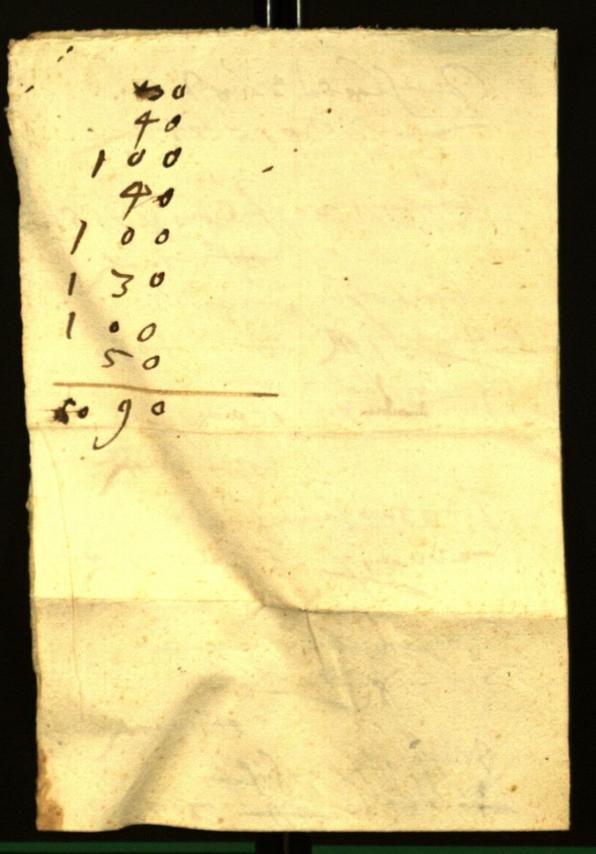 30
40
100
40
100
130
100
50
90